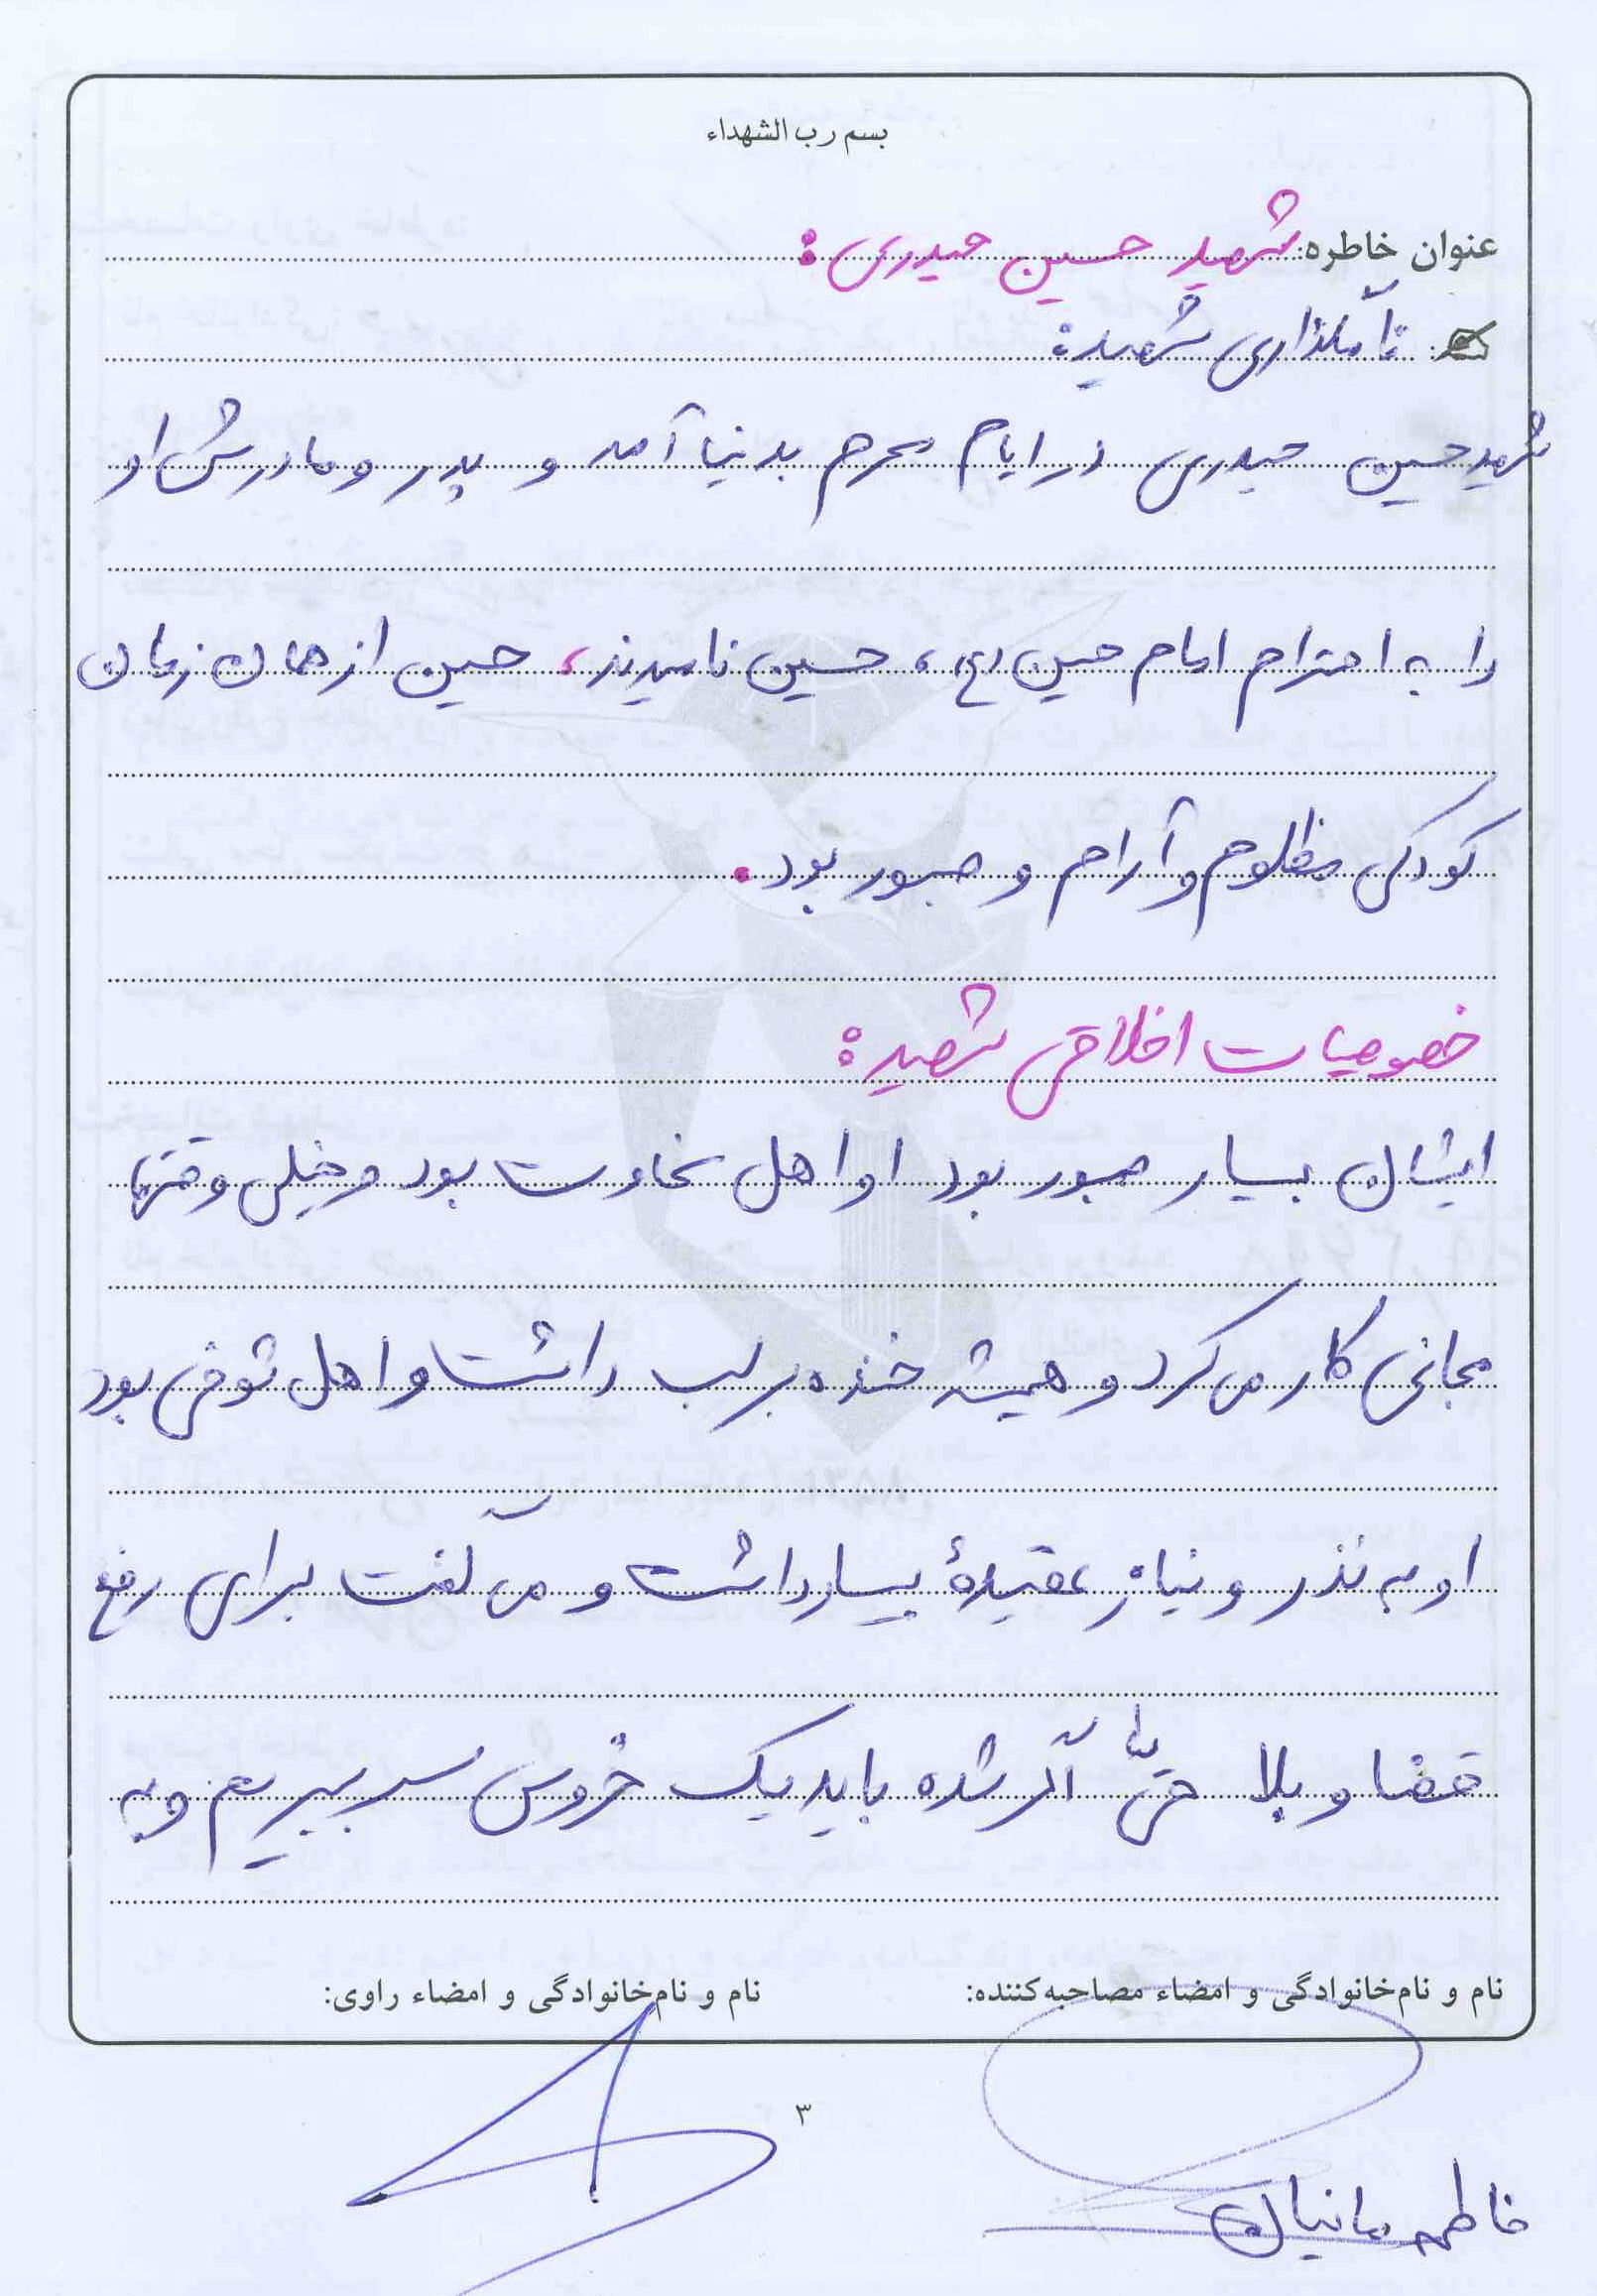 بسم رب الشهداء
عنوان خاطره: شهید حسین حیدری:
نامگذاری شهید:
شهید حسین حیدری در ایام محرم بدنیا آمد و پدر و مادرش او
را به احترام امام حسین (ع)، حسین نامیدند، حسین از همان زمان
کودکی مظلوم و آرام و صبور بود.
خصوصیات اخلاقی شهید:
ایشان بسیار صبور بود او اهل سخاوت بود و خیلی وقتها
مجانی کار می‌کرد و همیشه خنده بر لب داشت و اهل شوخی بود
او به نذر و نیاز عقیدهٔ بسیار داشت و می گفت برای رفع
قضا و بلا حتّی اگر شده باید یک خروس سر ببریم و به
نام و نام‌خانوادگی و امضاء مصاحبه‌کننده:
نام و نام‌خانوادگی و امضاء راوی:
۳
فاطمه مانیان